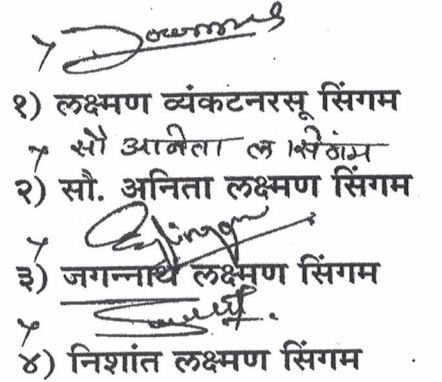 १) लक्ष्मण व्यंकटनरसू सिंगम
सौ आनिता ल सिंगम
२) सौ. अनिता लक्ष्मण सिंगम
३) जगन्नाथ लक्ष्मण सिंगम
४) निशांत लक्ष्मण सिंगम